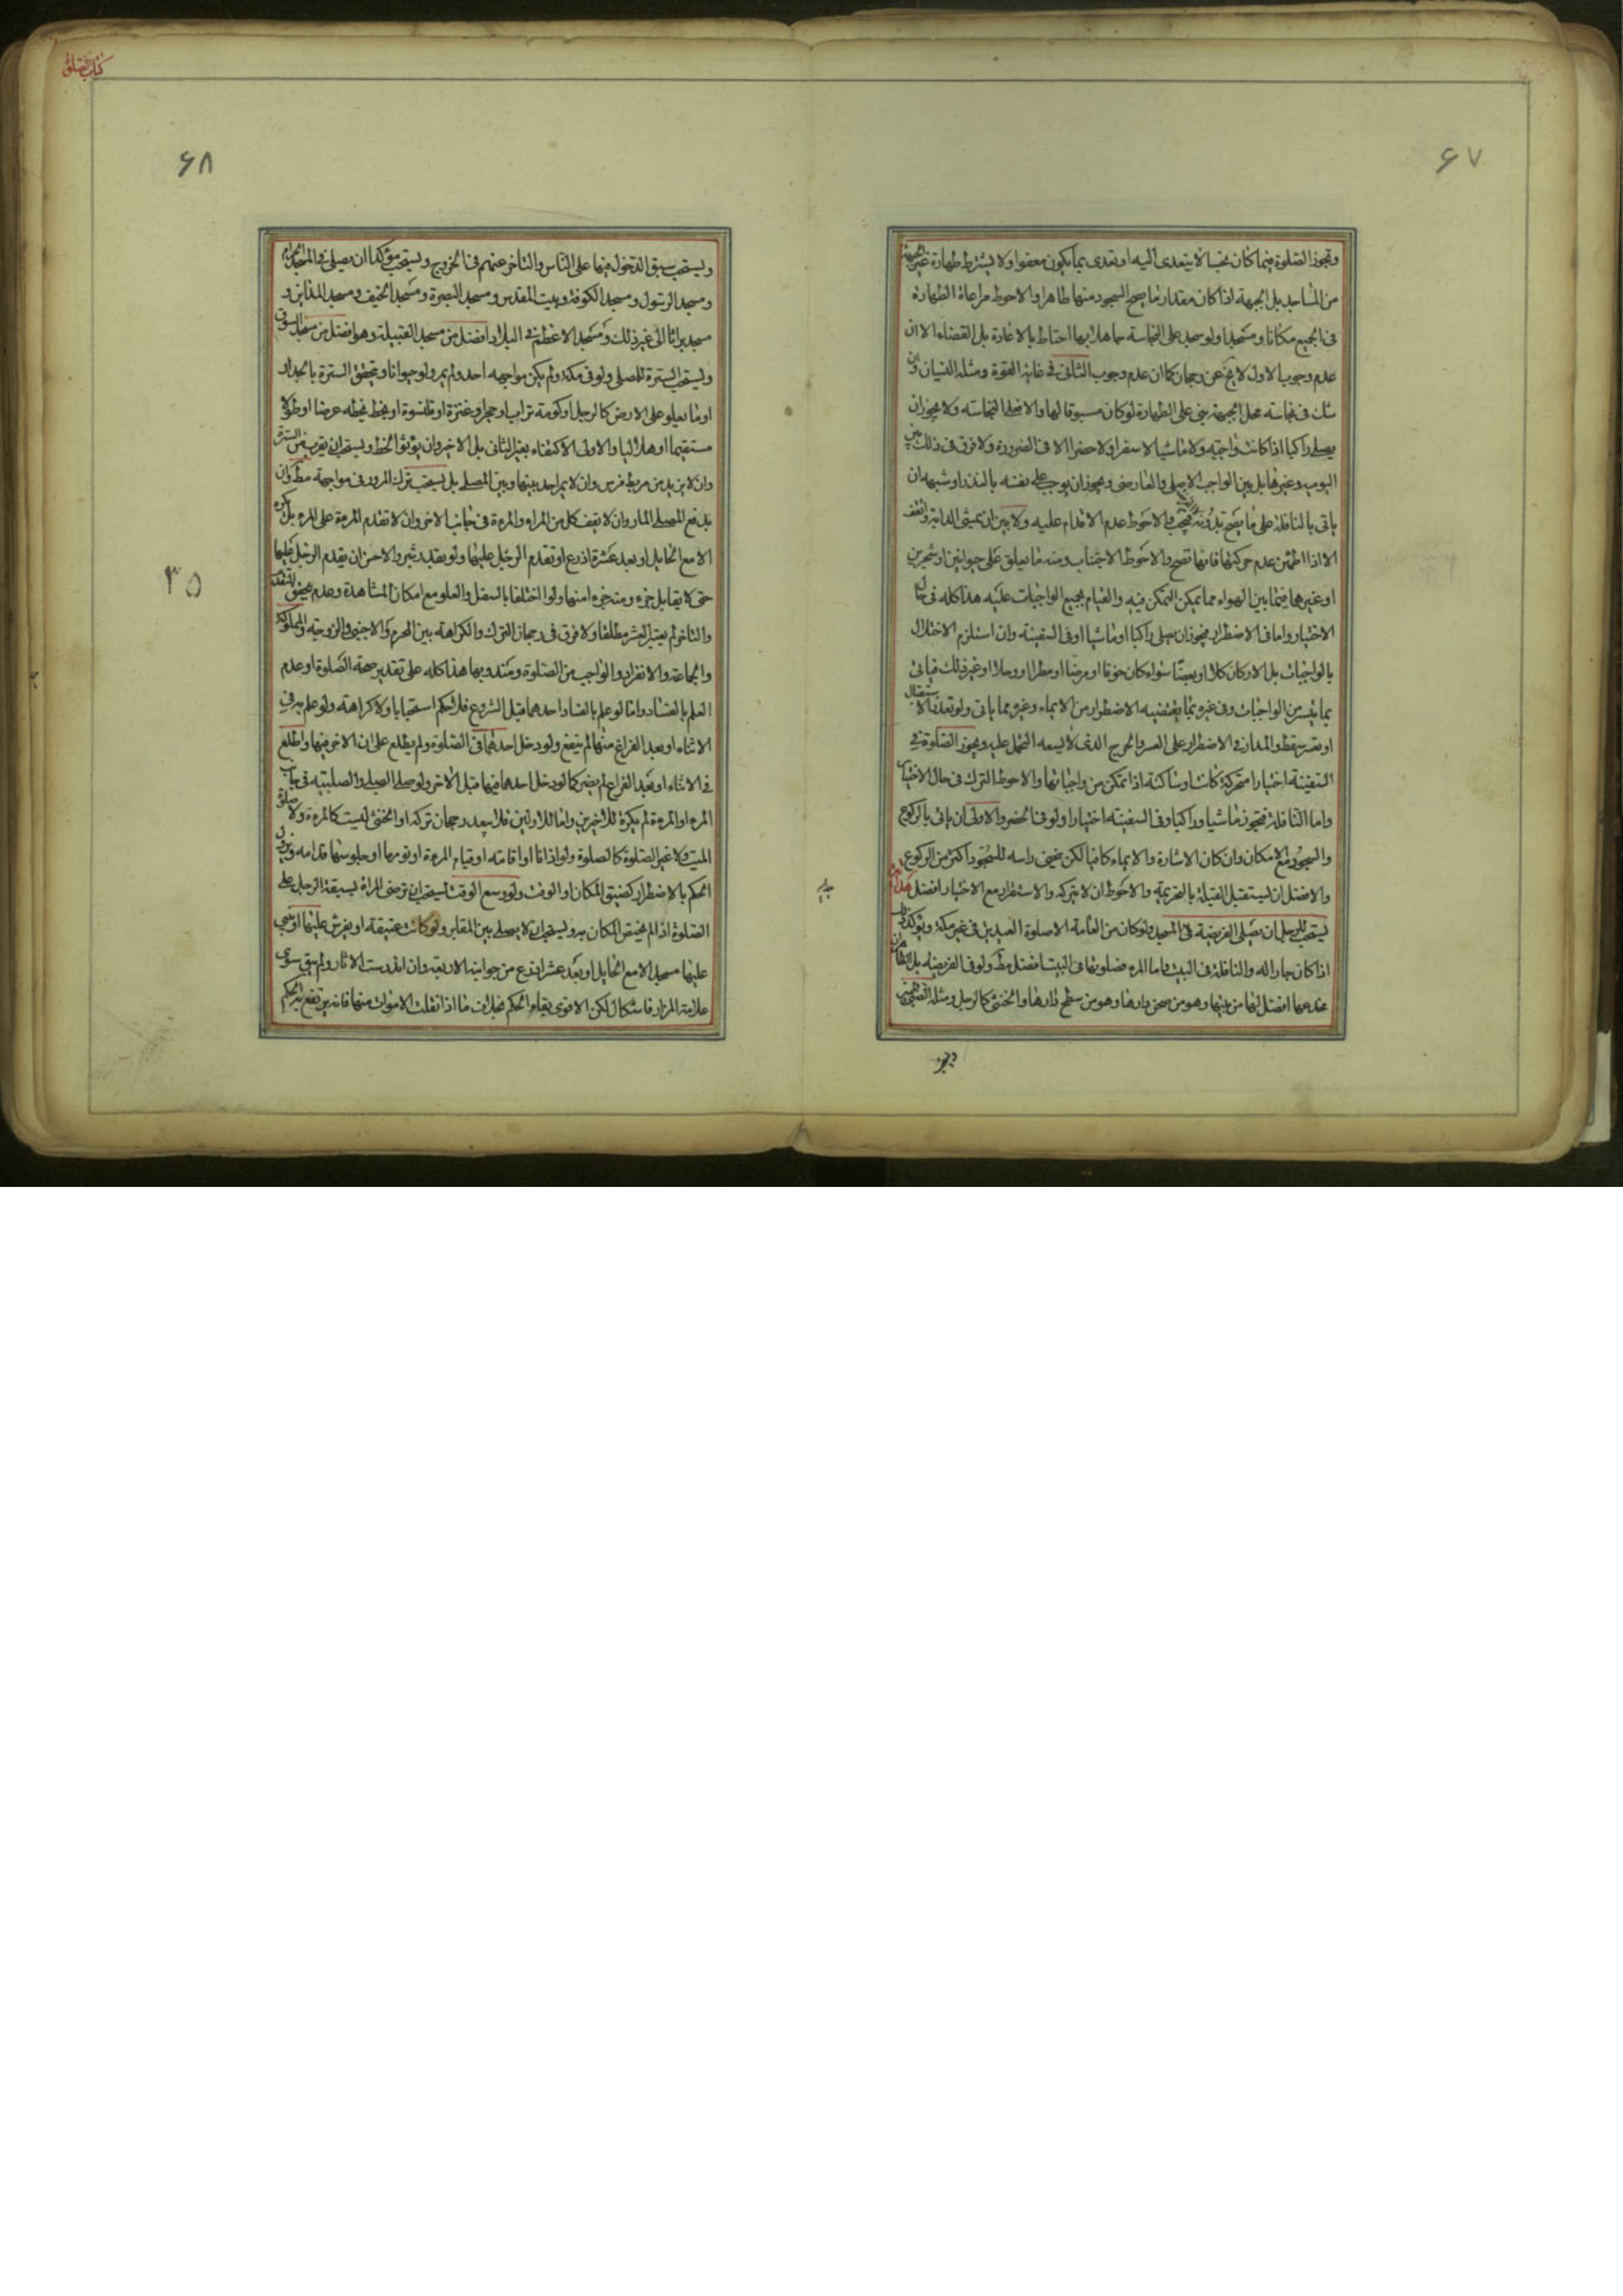 كتاب الصلوة
۶۷
وتجوز الصلوة فيما كان نجسا لا يتعدى اليه او تعدى بما يكون معفوا ولا يشترط طهارة غير الجبهة
من المساجد بل الجبهة اذا كان مقدار ما يصح السجود منها طاهرا والاحوط مراعاة الطهارة
فى الجميع مكانا ومسجدا ولو سجد على النجاسة جاهلا بها احتاط بالاعادة بل القضاء الا ان
عدم وجوب الاول لا يخ عن رجحان كما ان عدم وجوب الثانى فى غاية القوة ومثله النسيان وان
شك فى نجاسة محل الجبهة بنى على الطهارة لو كان مسبوقا لها والا فعلى النجاسة ولا يجوز ان
يصلى راكبا اذا كانت واجبة ولا ماشيا لا سفرا ولا حضرا الا فى الضرورة ولا فرق فى ذلك بين
اليومية وغيرها بل بين الواجب الاصلى والعارضى ويجوز ان يوجب على نفسه بالنذر او شبهه ان
ياتى بالنافلة على ما يصح بدونه والاحوط عدم الاقدام عليه ولا بين ان يمشى الدابة او تقف
الا اذا اطمئن عدم حركتها فانها تصح والاحوط الاجتناب ومنه ما يعلق على حيوانين او شجرين
او غيرها فيما بين الهواء مما يمكن التمكن فيه والقيام بجميع الواجبات عليه هذا كله فى حال
الاختيار واما فى الاضطرار فيجوز ان يصلى راكبا او ماشيا او فى السفينة وان استلزم الاختلال
بالواجبات بل الاركان كلا او بعضا سواء كان خوفا او مرضا او مطرا او وحلا او غير ذلك فياتى
بما يتيسر من الواجبات وفى غيره بما يقتضيه الاضطرار من الايماء وغيره مما ياتى ولو تعذر الاستقبال
او تعسر سقط والمدار فى الاضطرار على العسر والحرج الذى لا يسعه التحمل عليه ويجوز الصلوة فى
السفينة اختيارا متحركة كانت او ساكنة اذا تمكن من واجباتها والاحوط الترك فى حال الاختيار
واما النافلة فتجوز ماشيا وراكبا وفى السفينة اختيارا ولو فى الحضر والاولى ان ياتى بالركوع
والسجود مع الامكان وان كان الاشارة والايماء كافيا لكن يخفض راسه للسجود اكثر من الركوع
والافضل ان يستقبل القبلة بالتحريمة والاحوط ان لا يتركه والاستقرار مع الاختيار افضل
يستحب للرجل ان يصلى الفريضة فى المسجد ولو كان من العامة الا صلوة العيدين فى غير مكة ويتوكد ذلك
اذا كان جارا له والنافلة فى البيت واما المرءة فصلوتها فى البيت افضل مط ولو فى الفريضة بل
مخدعها افضل لها من بيتها وهو من صحن دارها وهو من سطح دارها والخنثى كالرجل ومثله الصبى
۶۸
ويستحب سبق الدخول فيها على الناس والتاخر عنهم فى الخروج ويستحب مؤكدا ان يصلى فى المسجد الحرام
ومسجد الرسول ومسجد الكوفة وبيت المقدس ومسجد البصرة ومسجد الخيف ومسجد المداين و
مسجد براثا الى غير ذلك ومسجد الاعظم فى البلاد افضل من مسجد القبيلة وهو افضل من مسجد السوق
ويستحب السترة للمصلى ولو فى مكة ولم يكن مواجهه احد ولم يمر ولو حيوانا وتتحقق السترة بالجدار
او ما يعلو على الارض كالرحل او كومة تراب او حجر او عنزة او قلنسوة او بخط يخطه عرضا او طولا
مستقيما او هلاليا والاولى الاكتفاء بغير الثانى بل الاخير وان يؤثر الخط ويستحب ان يقرب من السترة
وان لا يزيد من مربط فرس وان لا يمر احد بينها وبين المصلى بل يستحب ترك المرور فى مواجهة مط وان
يدفع المصلى المار وان لا يقف كل من المراه والمرءة فى جانب الاخر وان لا تقدم المرءة على المرء بل يكره
الا مع الحايل او بعد عشرة اذرع او تقدم الرجل عليها ولو بقدر شبر والاحسن ان يقدم الرجل عليها
حتى لا يقابل جزء منه جزء امنها ولو اختلفا بالسفل والعلو مع امكان المشاهدة وعدم تحقق التقدم
والتاخر لم يعتبر العشر مطلقا ولا فرق فى رجحان الترك والكراهة بين المحرم والاجنبى والزوجة والمملوكة
والجماعة والانفراد والواجب من الصلوة ومندوبها هذا كله على تقدير صحة الصلوة او عدم
العلم بالفساد واما لو علم بالفساد احدهما قبل الشروع فلا حكم استحبابا ولا كراهة ولو علم به فى
الاثناء او بعد الفراغ منها لم ينفع ولو دخل احدهما فى الصلوة ولم يطلع على ان الاخر فيها واطلع
فى الاثناء او بعد الفراغ لم يضر كما لو دخل احدهما فيها قبل الاخر ولو صلى الصبى والصبية فى جانب
المرء او المرءة لم يكره للاخيرين واما للاولين فلا يبعد رجحان تركه او الخنثى ليست كالمرءة ولا صلوة
الميت ولا غير الصلوة كالصلوة ولو اذانا او اقامة او قيام المرءة او نومها او جلوسها قدامه ويزول
الحكم بالاضطرار كضيق المكان او الوقت ولو وسع الوقت يستحب ان ترضى المراة بسبقة الرجل على
الصلوة اذا لم يختص المكان به ويستحب ان لا يصلى بين المقابر ولو كانت عتيقة او يفرش عليها او يبنى
عليها مسجد الا مع الحايل او بعد عشر اذرع من جوانبه الاربعة وان اندرست الاثار ولم يبق سوى
علامة المزار فاشكال لكن الاقوى بقاء الحكم بخلاف ما اذا نقلت الاموات منها فانه يرتفع به الحكم
۳۵